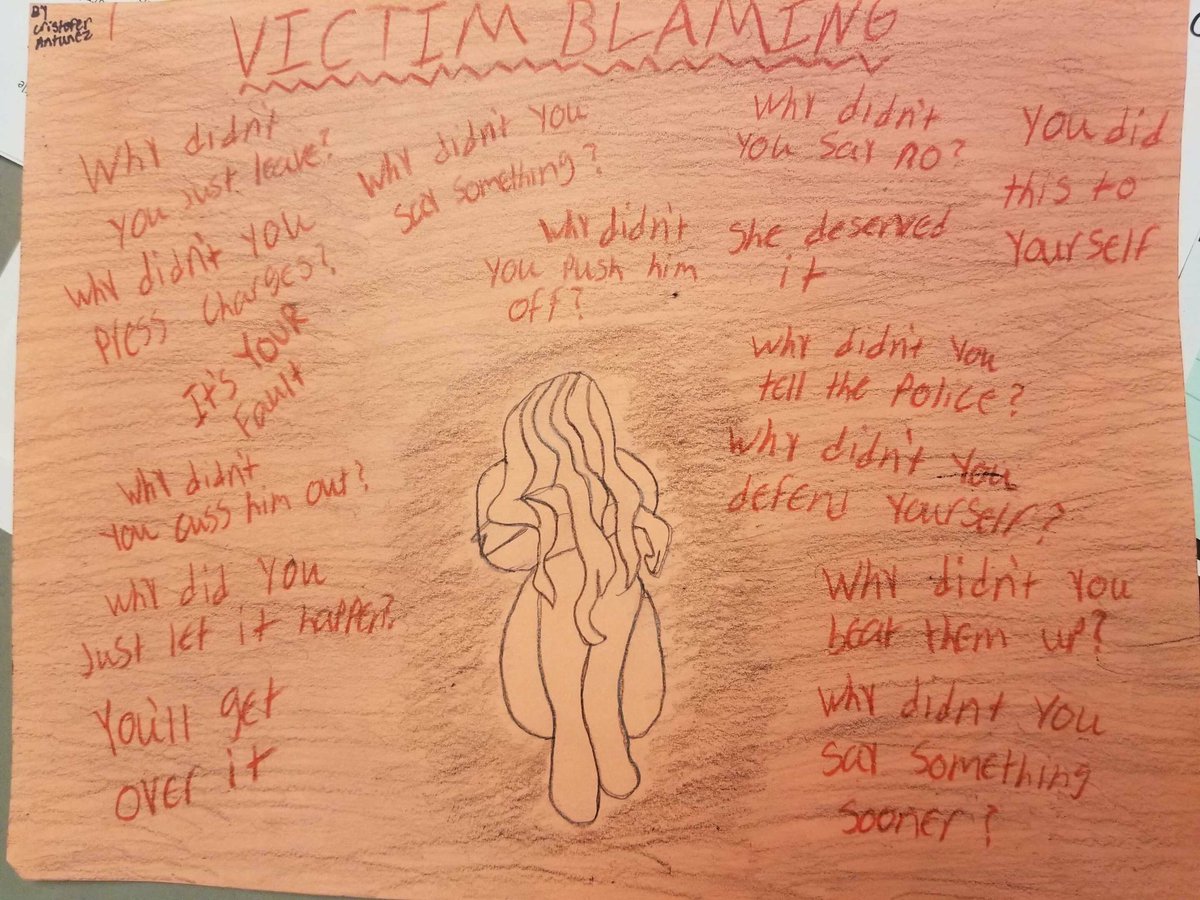 BY
Cristofer
Antunez
VICTIM BLAMING
Why didn't
you Just leave?
Why didn't you
say something?
Why didn't
you say no?
You did
this to
Yourself
Why didn't you
Press Charges?
Why didn't
you Push him
off?
She deserved
it
It's YOUR
Fault
Why didn't you
tell the Police?
Why didn't
you cuss him out?
Why didn't you
defend Yourself?
Why did you
Just let it happen?
Why didn't you
beat them up?
You'll get
over it
Why didn't you
say something
sooner?